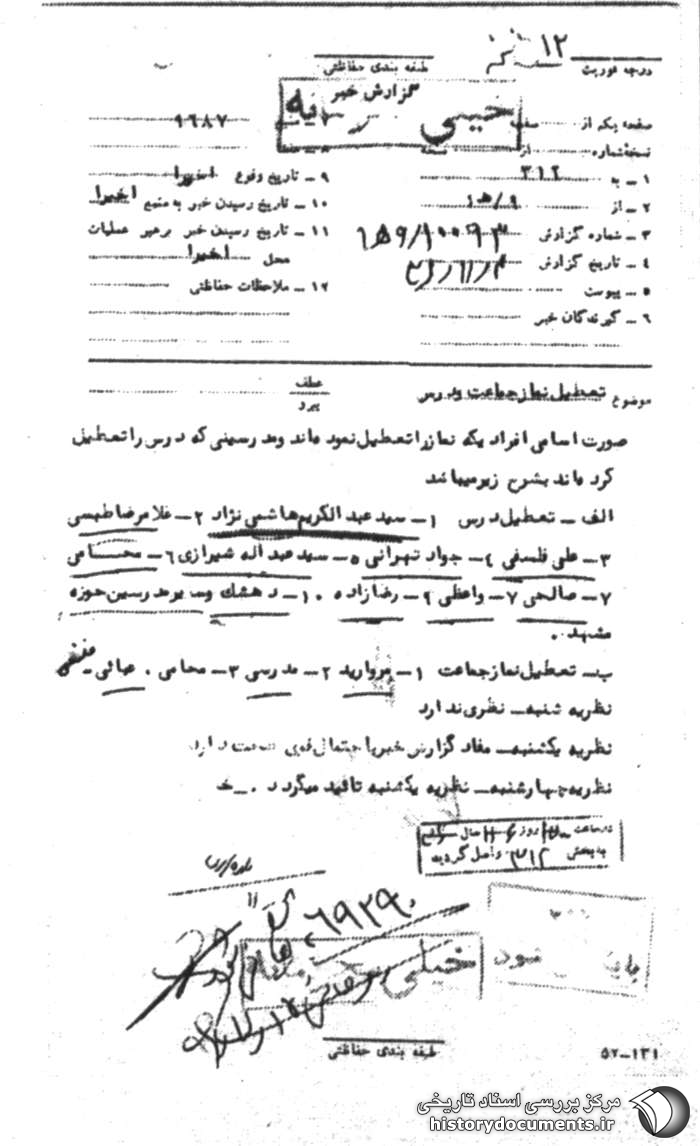 ۱۲
درجه فوریت
طبقه بندی حفاظتی
گزارش خبر
خیلی
صفحه یکم از صفحه
۹۶۸۷
نسخه شماره از نسخه
۱ – به ۳۱۲
۹ – تاریخ وقوع اخیرا
۲ – از ۹/ه۱
۱۰ – تاریخ رسیدن خبر به منبع اخیرا
۳ – شماره گزارش
۱۱ – تاریخ رسیدن خبر برهبر عملیات
محل اخیرا
۴ – تاریخ گزارش
۵ – پیوست
۱۲ – ملاحظات حفاظتی
۶ – گیرندگان خبر
موضوع تعطیل نماز جماعت ودرس
عطف
پیرو
صورت اسامی افراد یکه نماز را تعطیل نمود ه‌اند ومدرسینی که درس را تعطیل
کرد ه‌اند بشرح زیر میباشد
الف – تعطیل درس ۱– سید عبدالکریم هاشمی نژاد ۲– غلامرضا طبسی
۳– علی فلسفی ٤– جواد تهرانی ۵– سید عبداله شیرازی ۶– محامی
۷– صالحی ۷– واعظی ۹– رضازاده ۱۰– دهشت وسایر مدرسین حوزه
مشهد .
ب – تعطیل نماز جماعت ۱– مروارید ۲– مدرسی ۳– محامی . عبائی –
نظریه شنبه – نظری ندارد
نظریه یکشنبه – مفاد گزارش خبر با احتمال قوی صحت دارد
نظریه چهارشنبه – نظریه یکشنبه تائید میگردد . – خ
در ساعت روز سال
به بخش ۳۱۲ واصل گردید
۶۹۲۹۰
خیلی
شود
طبقه بندی حفاظتی
۵۲–۱۳۱
مرکز بررسی اسناد تاریخی
historydocuments.ir